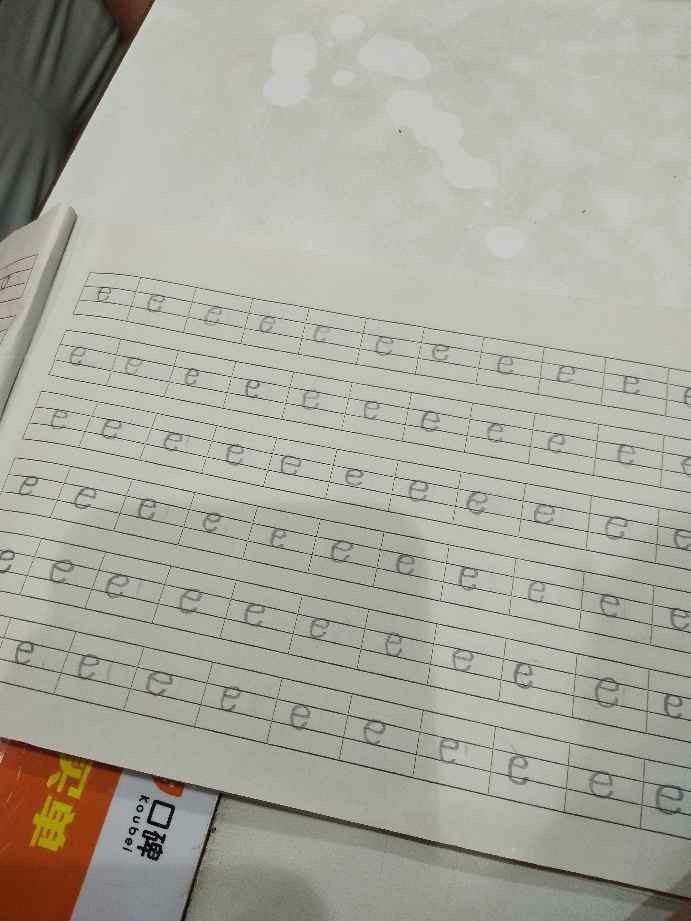 e e e e e e e e e e e
e e e e e e e e e e e
e e e e e e e e e e e
e e e e e e e e e e e
e e e e e e e e e e e
e e e e e e e e e e
口碑
koubei